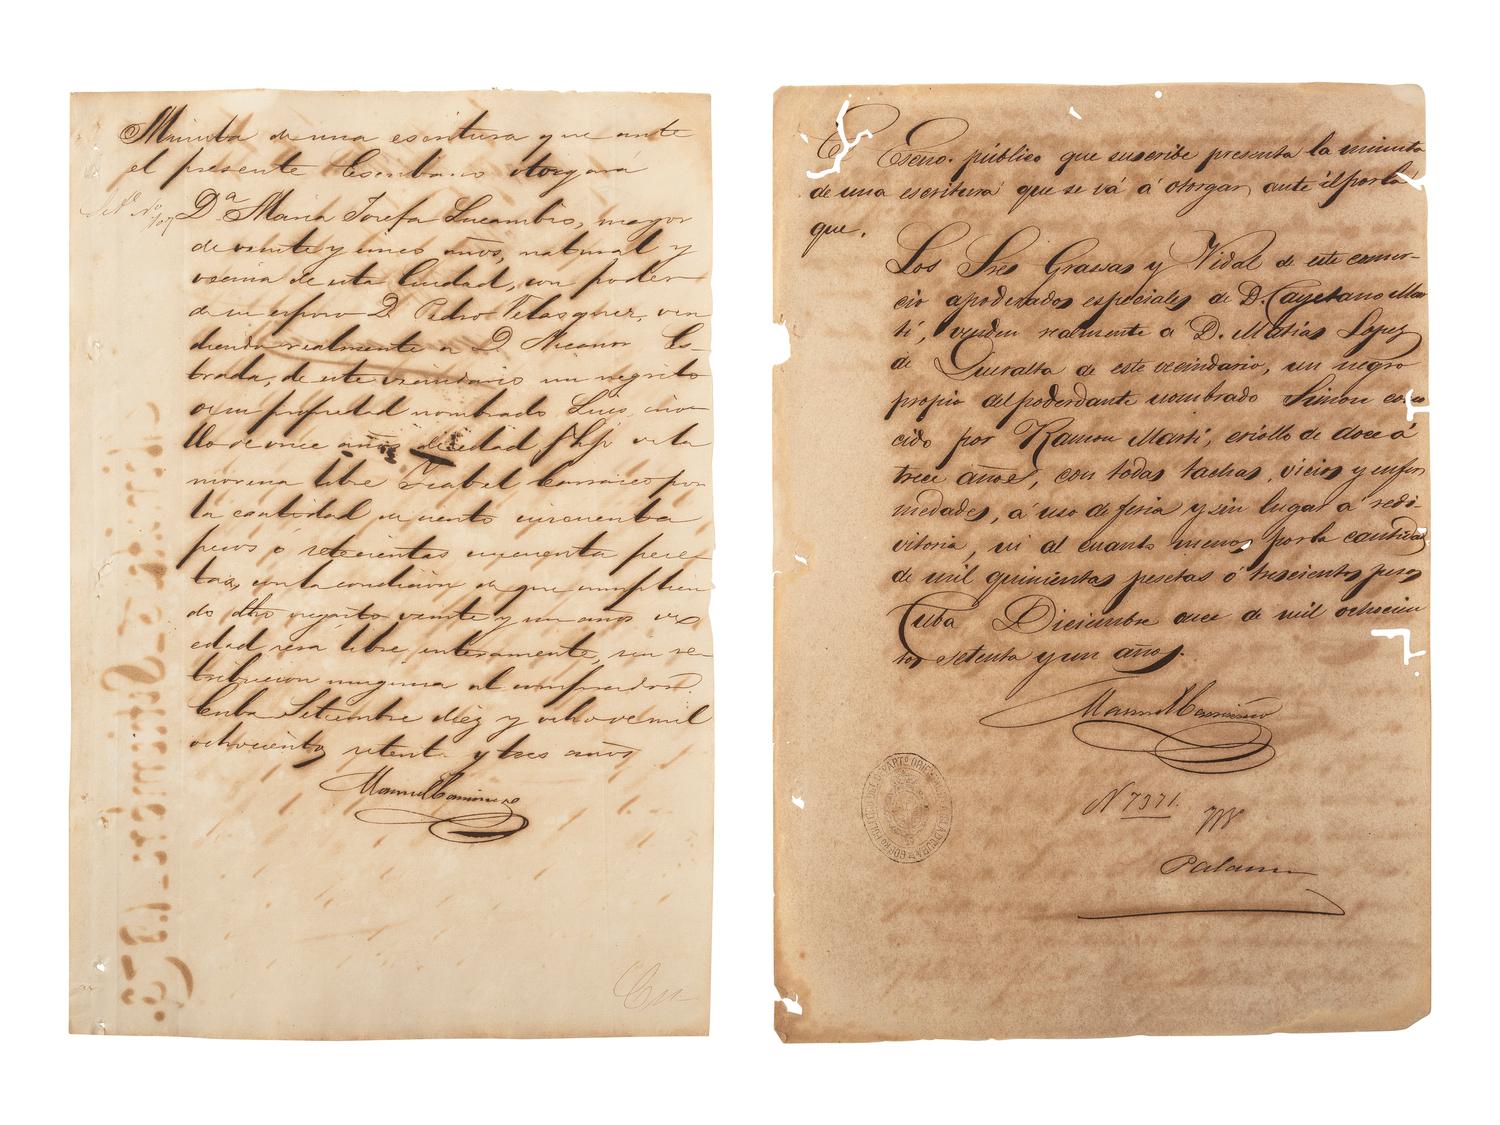 Minuta de una escritura que ante
el presente Escribano otorgará
Dª Maria Josefa Lucambio, mayor
de veinte y cinco años, natural y
vecina de esta Ciudad, con poder
de su esposo D. Pedro Velasquez, ven
diendo realmente a D. Nicanor Es-
trada, de este vecindario un negrito
de su propiedad nombrado Luis, crio-
llo de once años de edad hijo de la
morena libre Isabel Carrico por
la cantidad de ciento cincuenta
pesos ó setecientas cincuenta pese-
tas, con la condicion de que cumplien
do dho negrito veinte y un años de
edad será libre enteramente, sin re-
tribucion ninguna al comprador.
Cuba Setiembre diez y ocho de mil
ochocientos setenta y tres años
El Escno. público que suscribe presenta la minuta
de una escritura que se vá á otorgar ante él por la
que.
Los Sres Grassas y Vidal de este comer-
cio apoderados especiales de D. Cayetano Mar
tí, venden realmente a D. Matias Lopez
de Queralta de este vecindario, un negro
propio del poderdante nombrado Simon cono
cido por Ramon Martí, criollo de doce á
trece años, con todas tachas, vicios y enfer
medades, á uso de feria y sin lugar a redi-
vitoria, ni al cuanto menos por la cantidad
de mil quinientas pesetas ó trescientos pesos
Cuba Diciembre once de mil ochocien
tos setenta y un años.
N 7371.